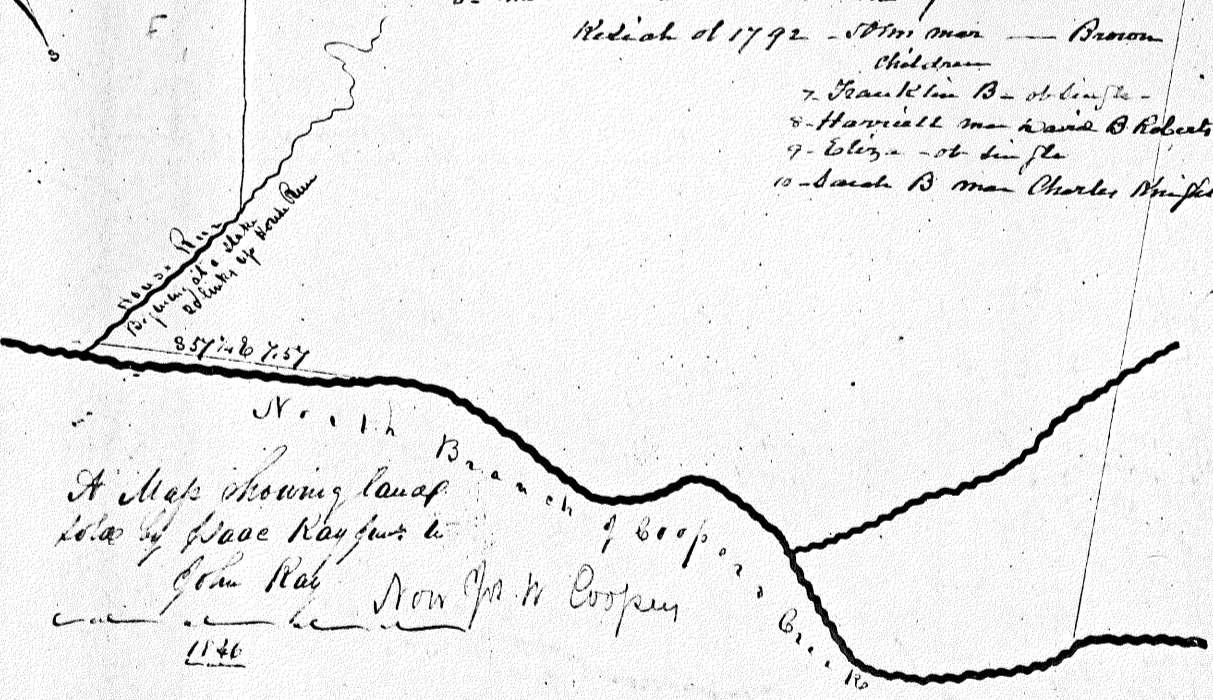 Keziah ob 1792 - mar — Brown
Children
7- Franklin B - ob single -
8 - Harriett mar David B Roberts
9 - Eliza - ob single
10 - Sarah B mar Charles Knight
House Run
Beginning at a stake
22 links up House Run
S 57 7.57
North Branch of Coopers Creek
A Map showing land
sold by Isaac Kay to
John Kay
Now Jos. W Cooper
1846